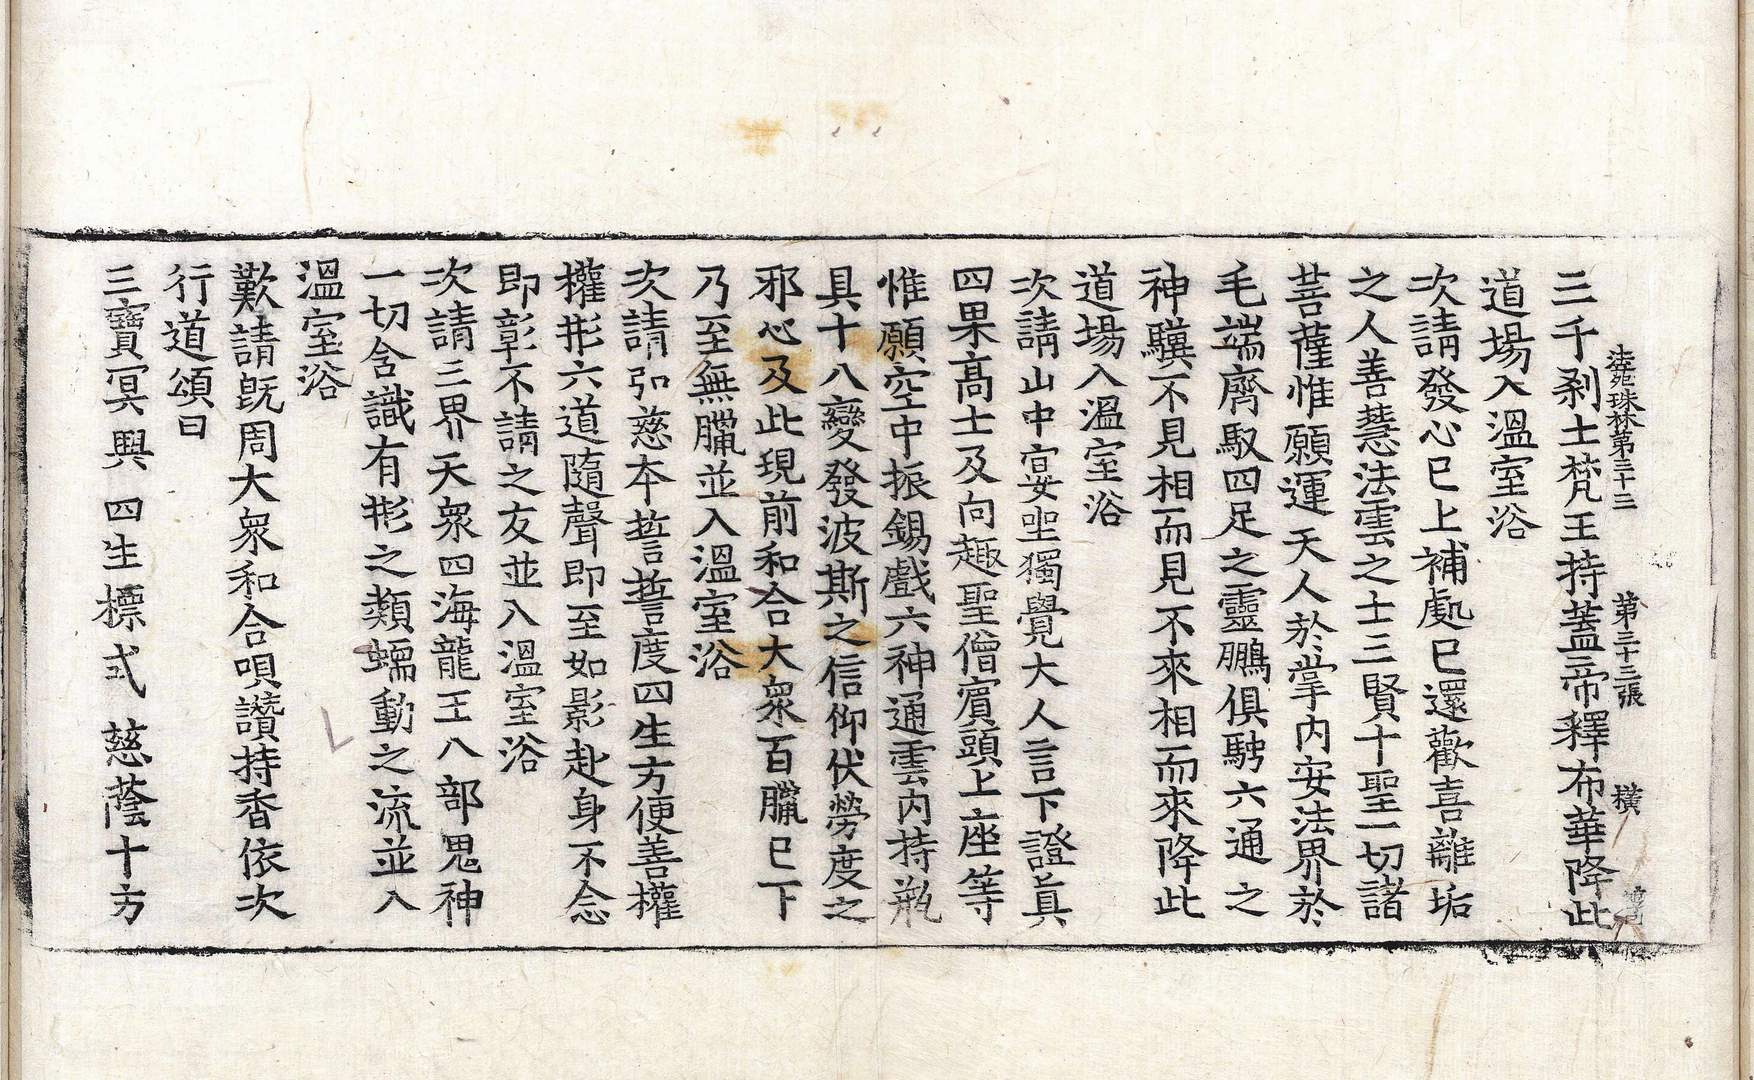 法苑珠林第三十三 第三十三張 橫
三千刹土梵王持蓋帝釋布華降此
道場入溫室浴
次請發心已上補處已還歡喜離垢
之人善慧法雲之士三賢十聖一切諸
菩薩惟願運天人於掌內安法界於
毛端齊馭四足之靈鵬俱騁六通之
神驥不見相而見不來相而來降此
道場入溫室浴
次請山中宴坐獨覺大人言下證眞
四果高士及向趣聖僧賓頭上座等
惟願空中振錫戲六神通雲內持瓶
具十八變發波斯之信仰伏勞度之
邪心及此現前和合大衆百臘已下
乃至無臘並入溫室浴
次請弘慈本誓誓度四生方便善權
權形六道隨聲即至如影赴身不念
即彰不請之友並入溫室浴
次請三界天衆四海龍王八部鬼神
一切含識有形之類蠕動之流並入
溫室浴
歎請旣周大衆和合唄讚持香依次
行道頌曰
三寶冥興 四生標式 慈蔭十方